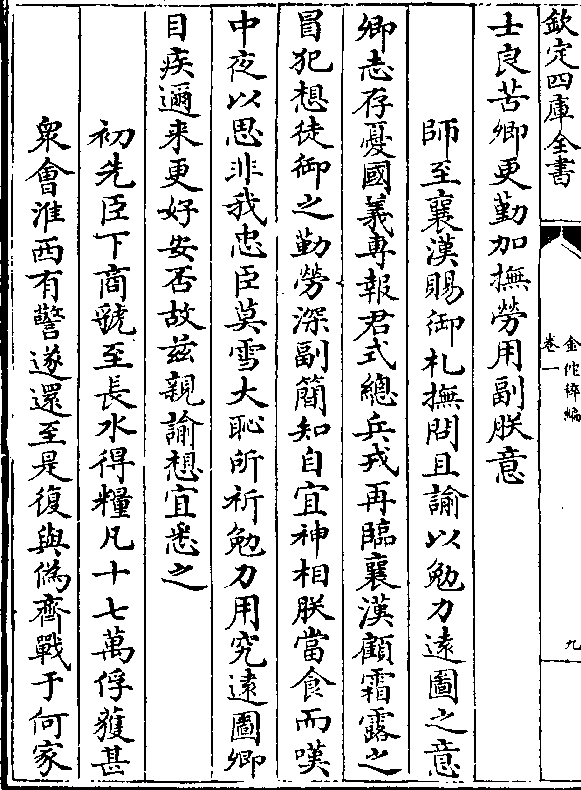 欽定四庫全書
金佗稡編
卷一
九
士良苦卿更勤加撫勞用副朕意
師至襄漢賜御札撫問且諭以勉力遠圖之意
卿志存憂國義專報君式總兵戎再臨襄漢顧霜露之
冒犯想徒御之勤勞深副簡知自宜神相朕當食而嘆
中夜以思非我忠臣莫雪大恥所祈勉力用究遠圖卿
目疾邇来更好安否故兹親諭想宜悉之
初先臣下商虢至長水得糧凡十七萬俘獲甚
衆會淮西有警遂還至是復與偽齊戰于何家